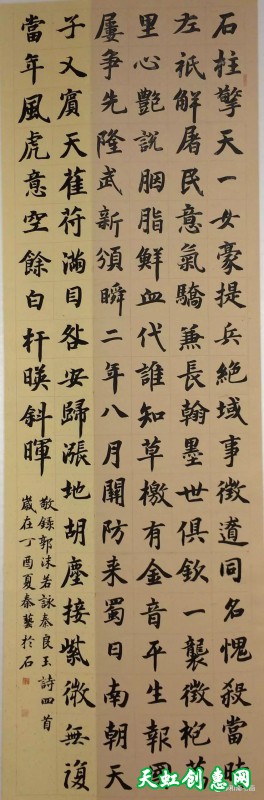 石柱擎天一女豪提兵絕域事徵遼同名愧殺當時
左祇解屠民意氣驕兼長翰墨世俱欽一襲徵袍萬
里心艷說胭脂鮮血代誰知草檄有金音平生報國
屢爭先隆武新頒瞬二年八月關防来蜀日南朝天
子又賓天萑苻滿目咎安歸漲地胡塵接紫微無復
當年風虎意空餘白杆暎斜暉
敬錄郭沫若詠秦良玉詩四首
歲在丁酉夏秦藝於石
天虹创意网